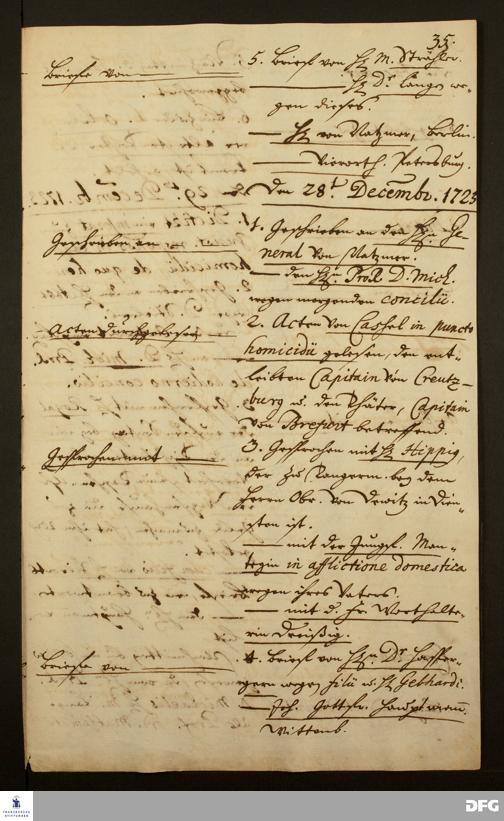 35.
Briefe von
5. Brief von H. M. Strähler.
H. Dr. Lange we-
gen dieses.
H. von Natzmer, Berlin.
Vierorth. Petersburg.
Den 28t. Decembr. 1723
Geschrieben an
1. Geschrieben an den H. Ge-
neral Von Natzmer.
den H. Prof. D. Mich.
wegen morgenden concilii.
Acten durchgelesen
2. Acten von Cassel in puncto
homicidii gelesen, den ent-
leibten Capitain von Creutz-
burg u. den Thäter, Capitain
von betreffend.
Gesprochen mit
3. Gesprochen mit H. Hippig,
der zu Tangerm. bey dem
Herrn Obr. von Dewitz in Dien-
sten ist.
mit der Jungf. Man-
tegin in afflictione domestica
wegen ihres Vaters.
mit d. Fr. Worthalte-
rin Dreißig.
Briefe von
4. Brief von H. Dr.
wegen filii u. H. Gebhardi.
Joh. Gottfr.
Wittenb.
FRANCKESCHE STIFTUNGEN
DFG